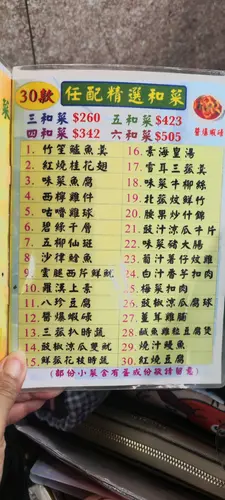 30款 任配精選和菜
三和菜 $260 五和菜 $423
四和菜 $342 六和菜 $505
醬爆蝦碌
1. 竹笙鱸魚羹
2. 紅燒桂花翅
3. 味菜魚腐
4. 西檸雞件
5. 咕嚕雞球
6. 碧綠干層
7. 五柳仙斑
8. 沙律鱠魚
9. 雲腿西斤鮮魷
10. 羅漢上素
11. 八珍豆腐
12. 醬爆蝦碌
13. 三菇扒時蔬
14. 豉椒涼瓜雙魷
15. 鮮菇花枝時蔬
16. 素海皇湯
17. 雪耳三菇羹
18. 味菜牛柳絲
19. 北菇炆鮮竹
20. 腰果炒什錦
21. 豉汁涼瓜牛片
22. 味菜豬大腸
23. 蒜汁薯仔炆雞
24. 白汁香芋扣肉
25. 梅菜扣肉
26. 豉椒涼瓜腐球
27. 薑茸雞腩
28. 鹹魚雞粒豆腐煲
29. 燒汁鯪魚
30. 紅燒豆腐
(部份小菜含有蛋或份敬請留意)